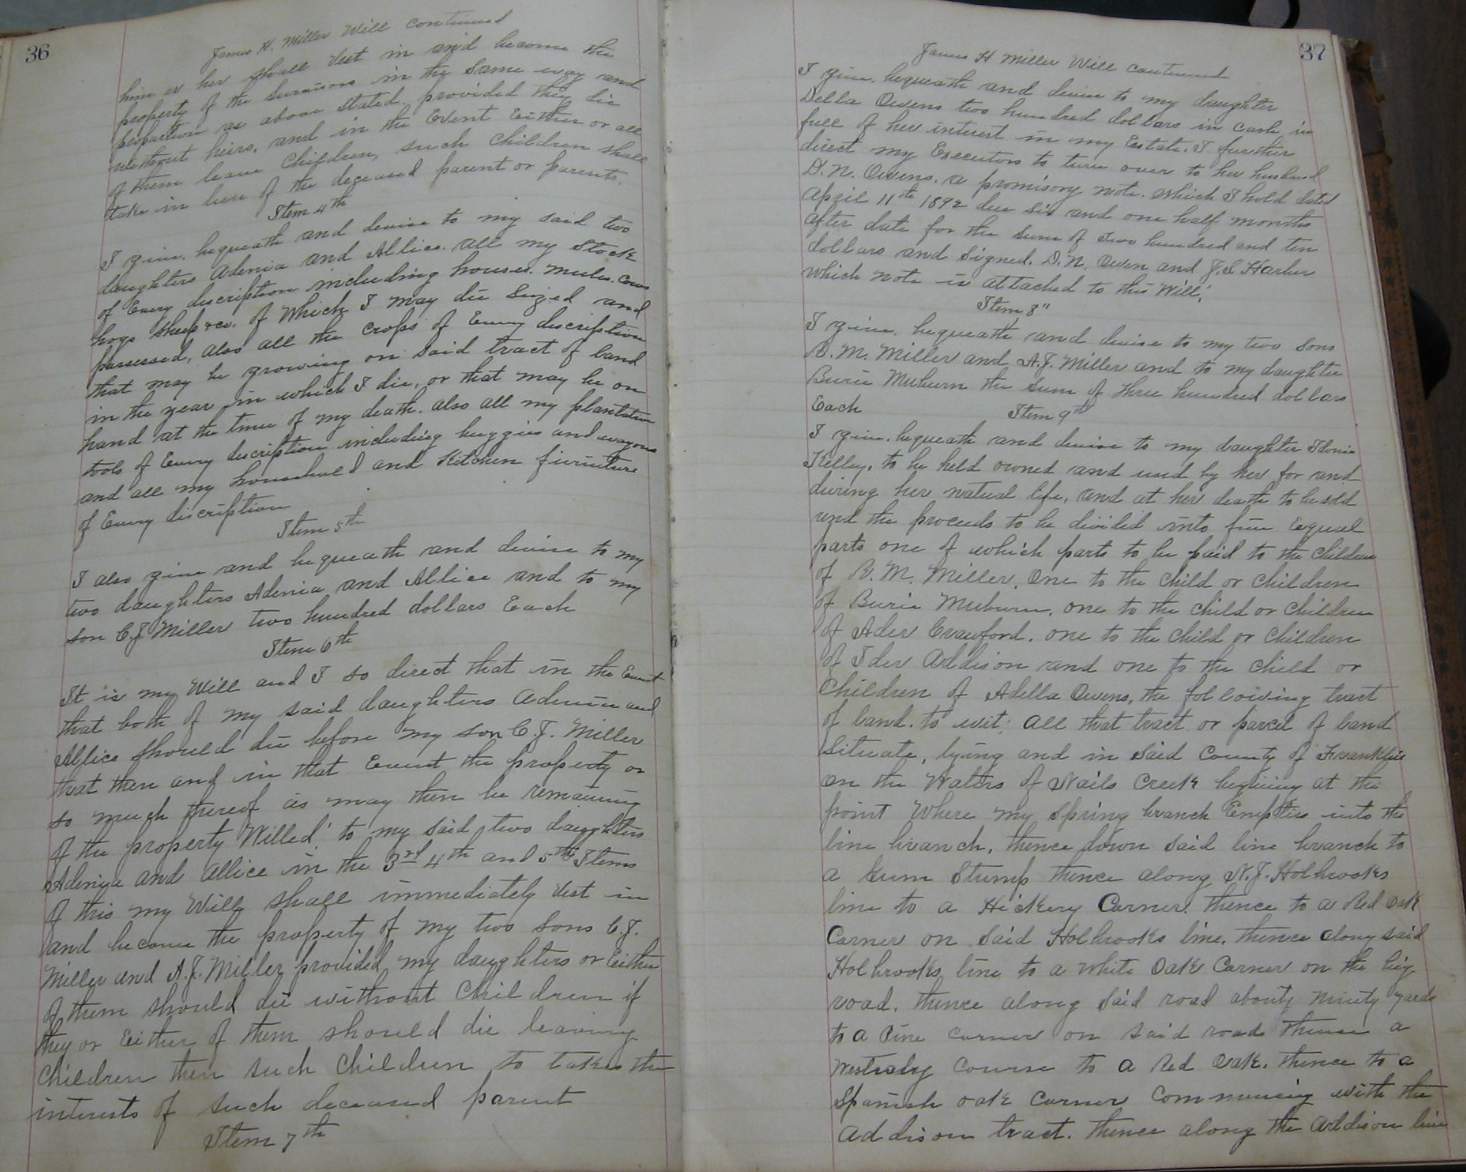 36
James H. Miller Will continued
him or her shall vest in and become the
property of the survivors in the same way and
as above stated, provided they die
without heirs, and in the Event Either or all
of them leave Children, such Children shall
take in lieu of the deceased parent or parents.
Item 4th
I give, bequeath and devise to my said two
daughters Adenia and Allice all my Stock
of Every discription including horses, mules, Cows
hogs sheep &c. of which I may die Seized and
possessed, also all the crops of Every discription
that may be growing on said tract of land
in the year in which I die, or that may be on
hand at the time of my death. also all my plantation
tools of Every discription including buggies and wagons
and all my household and Kitchen furniture
of Every discription
Item 5th
I also give and bequeath and devise to my
two daughters Adenia and Allice and to my
son C.J. Miller two hundred dollars Each
Item 6th
It is my Will and I so direct that in the Event
that both of my said daughters Adenia and
Allice should die before my son C.J. Miller
that then and in that Event the property or
so much thereof as may then be remaining
of the property Willed to my said two daughters
Adenia and Allice in the 3rd 4th and 5th Items
of this my Will shall immediately vest in
and become the property of my two sons C.J.
Miller and A.J. Miller provided my daughters or Either
of them should die without Children if
they or Either of them should die leaving
Children then such Children to take the
interests of such deceased parent
Item 7th
37
James H Miller Will continued
I give, bequeath and devise to my daughter
Della Owens two hundred dollars in cash in
full of her interest in my Estate. I further
direct my Executors to turn over to her husband
D.N. Owens, a promisory note which I hold dated
April 11th 1892 due Six and one half months
after date for the sum of two hundred and ten
dollars and signed, D.N. Owen and J.S. Harber
which note is attached to this Will.
Item 8"
I give, bequeath and devise to my two sons
B.M. Miller and A.J. Miller and to my daughter
Burie the sum of three hundred dollars
Each
Item 9th
I give, bequeath and devise to my daughter
Kelley, to be held owned and used by her for and
during her natural life, and at her death to be sold
and the proceeds to be divided into five Equal
parts one of which parts to be paid to the Children
of B.M. Miller, One to the child or children
of Burie one to the child or Children
of Ader Crawford, one to the child or Children
of Ider Addison and one to the child or
Children of Adella Owens, the following tract
of land, to wit: All that tract or parcel of land
Situate, lying and in said County of Franklin
on the Waters of Nails Creek begining at the
point Where my spring branch Empties into the
line branch, thence down said line branch to
a Gum Stump thence along N.J. Holbrooks
line to a Hickery Corner, thence to a Red oak
Corner on said Holbrooks line, thence along said
Holbrooks line to a White Oak Corner on the big
road, thence along said road about ninety yards
to a Pine corner on said road thence a
Westerly Course to a Red Oak, thence to a
Spanish oak Corner Commencing with the
Addison tract. thence along the Addison line